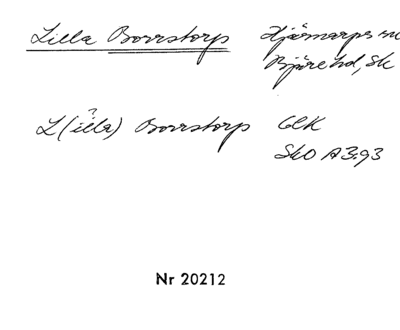 Lilla Borrstorp Hjärnarps sn
Bjäre hd, Sk
?
L(illa) Borrstorp GEK
SkO A3:93
Nr 20212